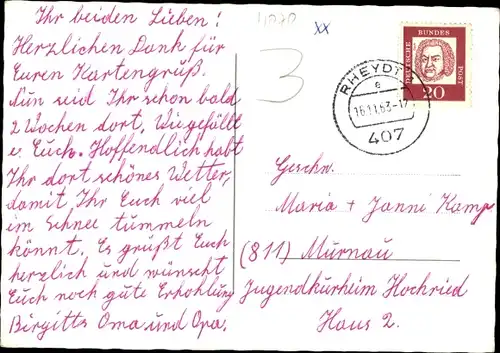 Ihr beiden Lieben!
Herzlichen Dank für
Euren Kartengruß.
Nun seid Ihr schon bald
2 Wochen dort. Wie gefällt
e. Euch. Hoffendlich habt
Ihr dort schönes Wetter,
damit Ihr Euch viel
im Schnee tummeln
könnt. Es grüßt Euch
herzlich und wünscht
Euch noch gute Erholung
Birgitts Oma und Opa.
xx
3
DEUTSCHE BUNDES POST
20
RHEYDT
e
16.11.63-17
407
Geschw.
Maria + Janni Kamp
(811) Murnau
Jugendkurheim Hochried
Haus 2.